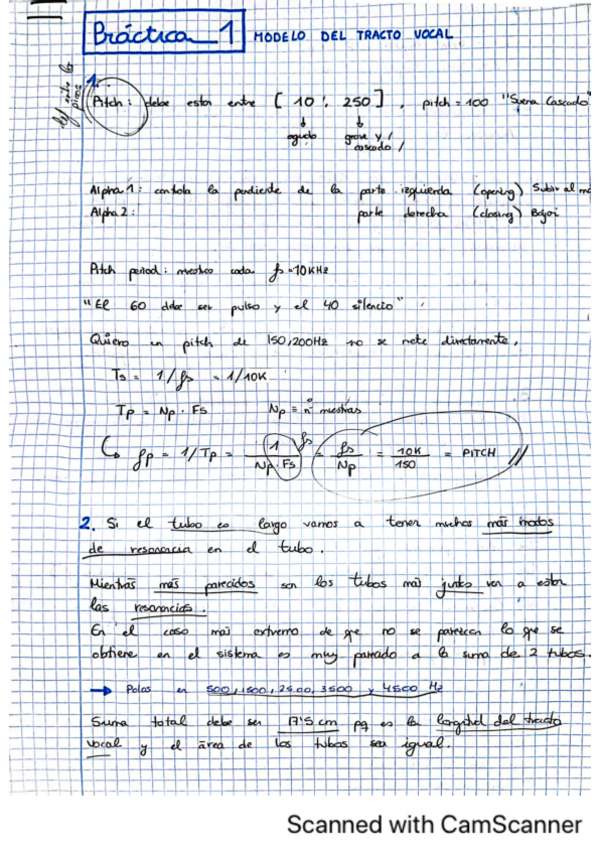 Práctica_1 MODELO DEL TRACTO VOCAL
1.
Pitch: debe estar entre [10 : 250], pitch = 100 "Suena Cascado"
agudo grave y / cascado /
Alpha 1: controla la pendiente de la parte izquierda (opening) Subir al
Alpha 2: parte derecha (closing) Bajar
Pitch period: muestreo cada fs = 10KHz
"El 60 debe ser pulso y el 40 silencio"
Quiero un pitch de 150,200Hz no se mete directamente.
Ts = 1/fs = 1/10K
Tp = Np · Fs Np = nº muestras
fp = 1/Tp = 1/Np·Fs = fs/Np = 10K/150 = PITCH //
2. Si el tubo es largo vamos a tener muchos más modos
de resonancia en el tubo.
Mientras más parecidos son los tubos más juntos van a estar
las resonancias.
En el caso más extremo de que no se parezcan lo que se
obtiene en el sistema es muy parecido a la suma de 2 tubos.
→ Polos en 500, 1500, 2500, 3500 y 4500 Hz
Suma total debe ser 17'5 cm pq es la longitud del tracto
vocal y el área de los tubos sea igual.
Scanned with CamScanner